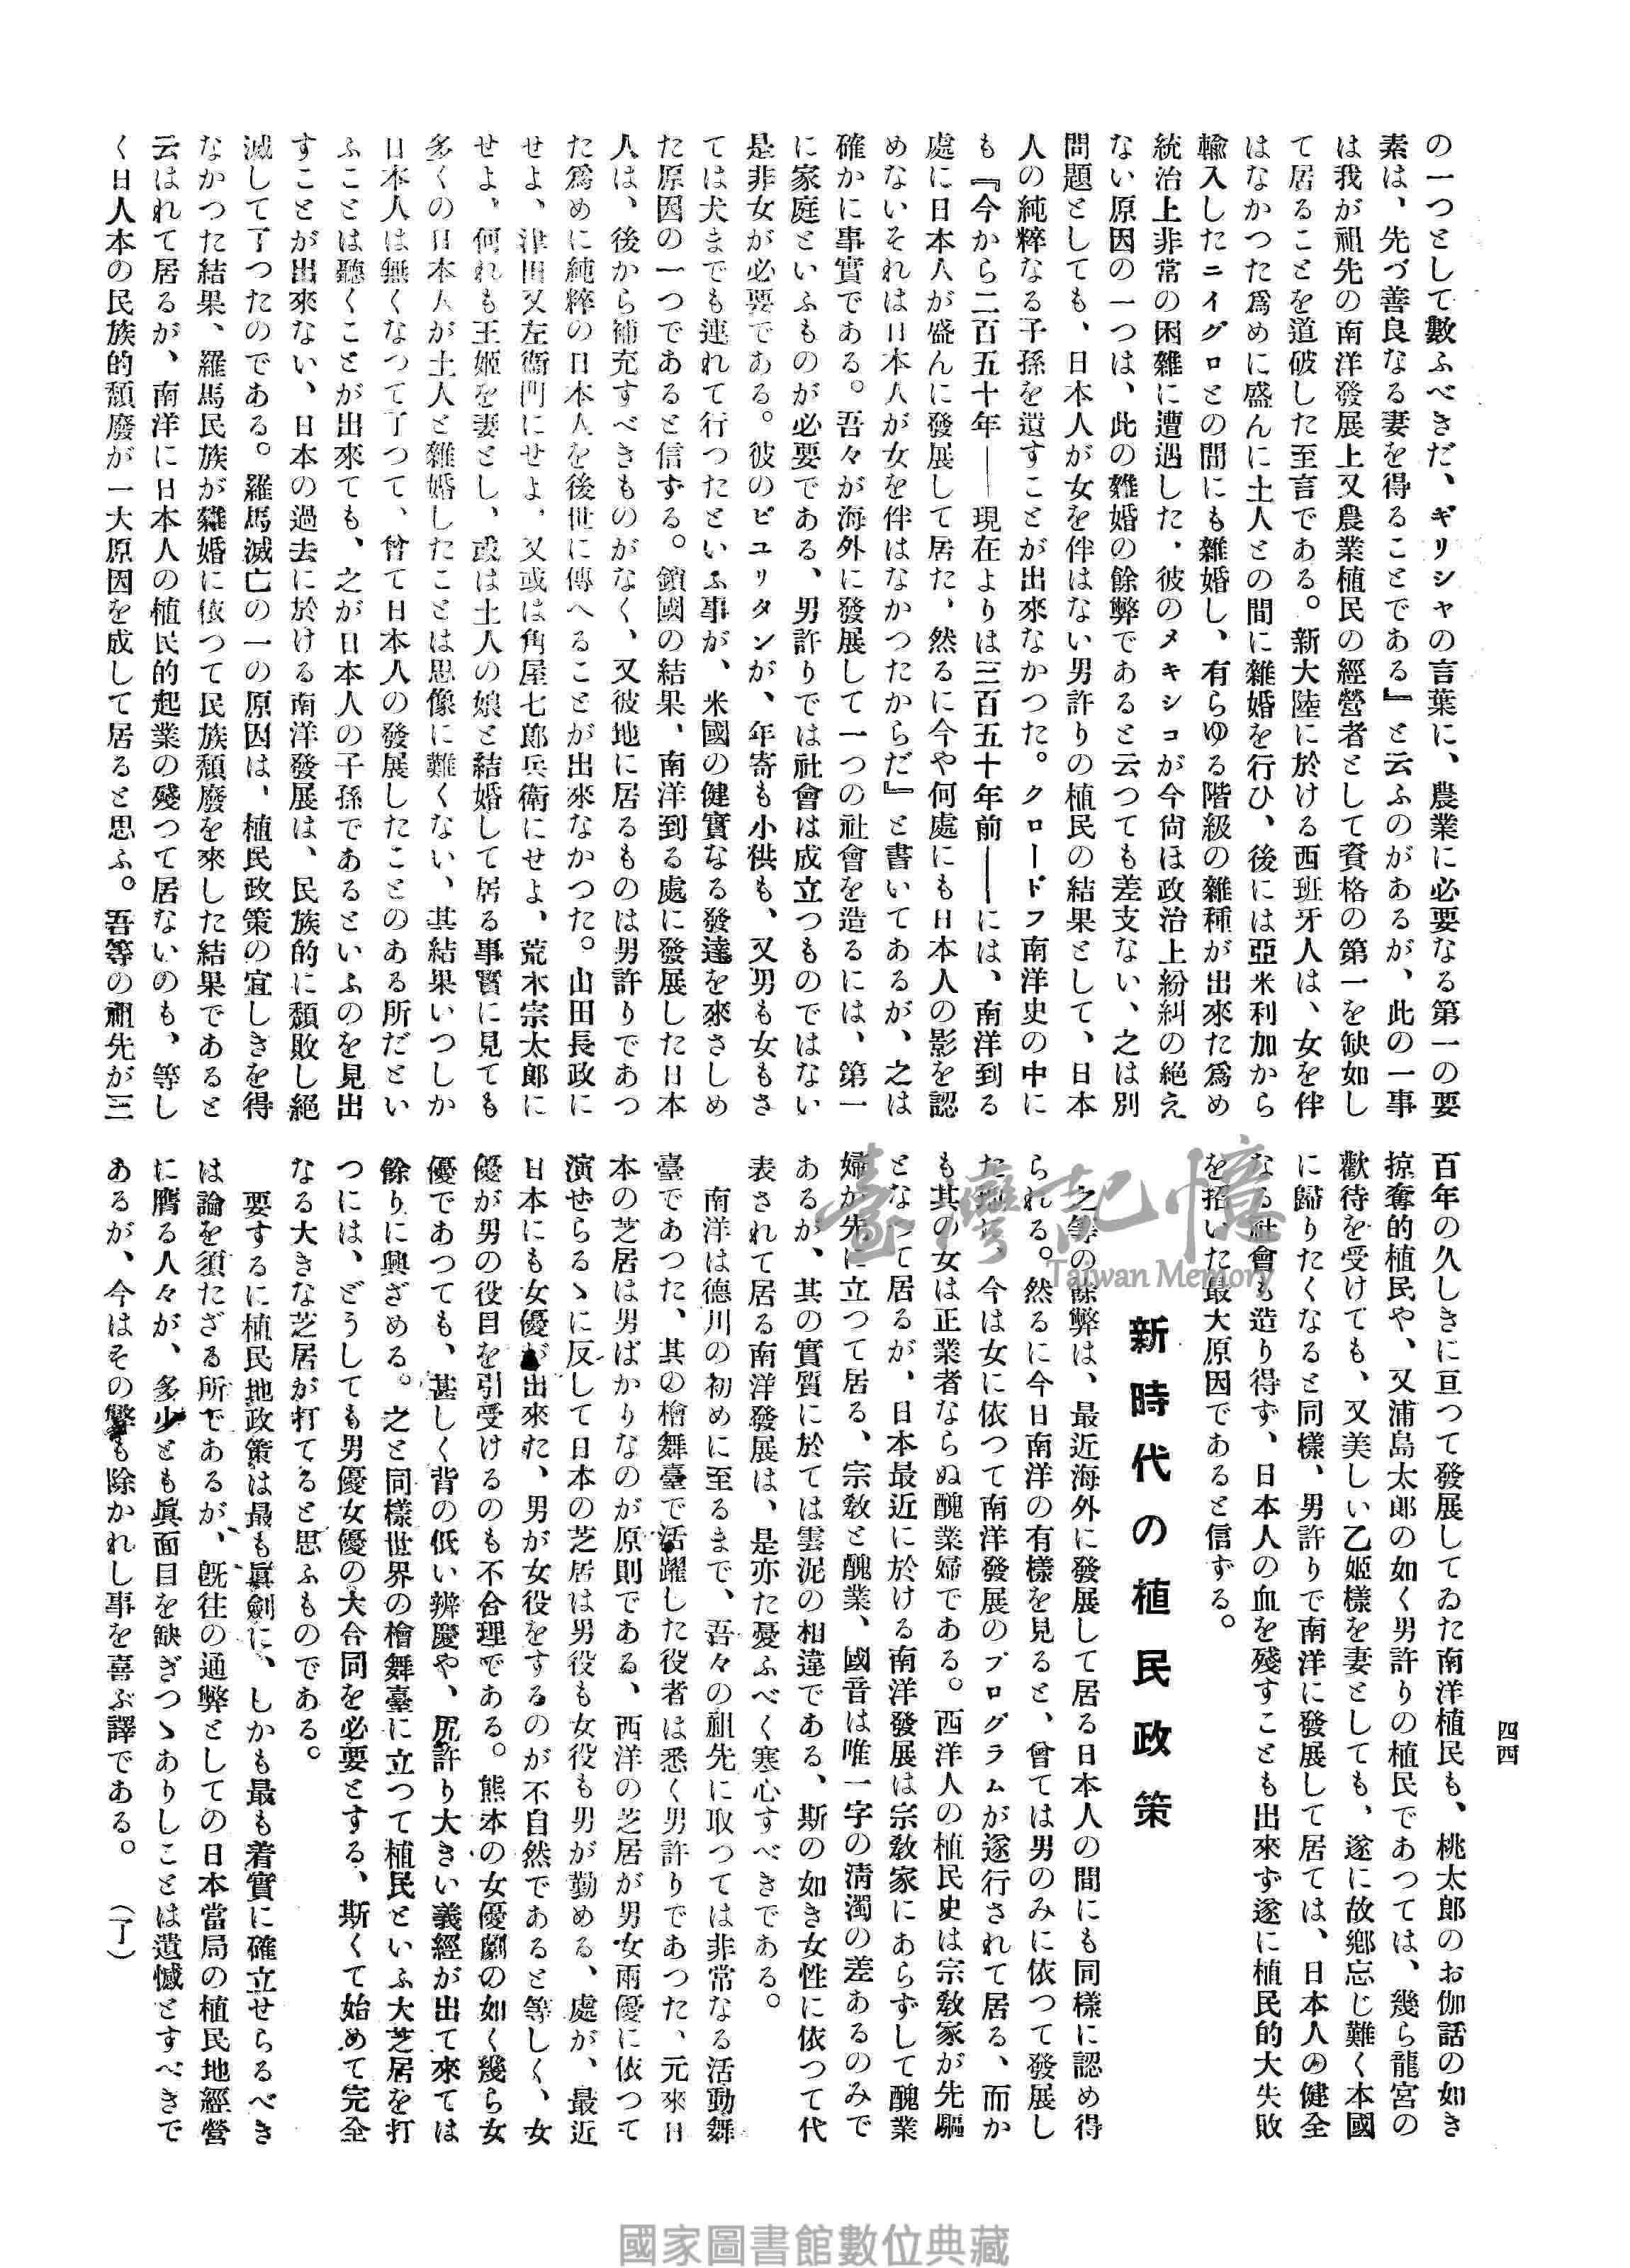 の一つとして數ふべきだ、ギリシャの言葉に、農業に必要なる第一の要
素は、先づ善良なる妻を得ることである』と云ふのがあるが、此の一事
は我が祖先の南洋發展上又農業植民の經營者として資格の第一を缺如し
て居ることを道破した至言である。新大陸に於ける西班牙人は、女を伴
はなかつた爲めに盛んに土人との間に雜婚を行ひ、後には亞米利加から
輸入したニイグロとの間にも雜婚し、有らゆる階級の雜種が出來た爲め
統治上非常の困難に遭遇した、彼のメキシコが今尙ほ政治上紛糾の絕え
ない原因の一つは、此の雜婚の餘弊であると云つても差支ない、之は別
問題としても、日本人が女を伴はない男許りの植民の結果として、日本
人の純粹なる子孫を遺すことが出來なかつた。クロードフ南洋史の中に
も『今から二百五十年――現在よりは三百五十年前――には、南洋到る
處に日本人が盛んに發展して居た、然るに今や何處にも日本人の影を認
めないそれは日本人が女を伴はなかつたからだ』と書いてあるが、之は
確かに事實である。吾々が海外に發展して一つの社會を造るには、第一
に家庭といふものが必要である、男許りでは社會は成立つものではない
是非女が必要である。彼のピユリタンが、年寄も小供も、又男も女もさ
ては犬までも連れて行つたといふ事が、米國の健實なる發達を來さしめ
た原因の一つであると信ずる。鎖國の結果、南洋到る處に發展した日本
人は、後から補充すべきものがなく、又彼地に居るものは男許りであつ
た爲めに純粹の日本人を後世に傳へることが出來なかつた。山田長政に
せよ、津田又左衞門にせよ、又或は角屋七郞兵衛にせよ、荒木宗太郎に
せよ、何れも王姬を妻とし、或は土人の娘と結婚して居る事實に見ても
多くの日本人が土人と雜婚したことは思像に難くない、其結果いつしか
日本人は無くなつて了つて、曾て日本人の發展したことのある所だとい
ふことは聽くことが出來ても、之が日本人の子孫であるといふのを見出
すことが出來ない、日本の過去に於ける南洋發展は、民族的に頽敗し絕
滅して了つたのである。羅馬滅亡の一の原因は、植民政策の宜しきを得
なかつた結果、羅馬民族が雜婚に依つて民族頽廢を來した結果であると
云はれて居るが、南洋に日本人の植民的起業の殘つて居ないのも、等し
く日人本の民族的頽廢が一大原因を成して居ると思ふ。吾等の祖先が三
百年の久しきに亘つて發展してゐた南洋植民も、桃太郎のお伽話の如き
掠奪的植民や、又浦島太郎の如く男許りの植民であつては、幾ら龍宮の
歡待を受けても、又美しい乙姬樣を妻としても、遂に故鄕忘じ難く本國
に歸りたくなると同樣、男許りで南洋に發展して居ては、日本人の健全
なる社會も造り得ず、日本人の血を殘すことも出來ず遂に植民的大失敗
を招いた最大原因であると信ずる。
新時代の植民政策
之等の餘弊は、最近海外に發展して居る日本人の間にも同樣に認め得
られる。然るに今日南洋の有樣を見ると、曾ては男のみに依つて發展し
た地に、今は女に依つて南洋發展のプログラムが遂行されて居る、而か
も其の女は正業者ならぬ醜業婦である。西洋人の植民史は宗敎家が先驅
となつて居るが、日本最近に於ける南洋發展は宗敎家にあらずして醜業
婦が先に立つて居る、宗敎と醜業、國音は唯一字の淸濁の差あるのみで
あるが、其の實質に於ては雲泥の相違である、斯の如き女性に依つて代
表されて居る南洋發展は、是亦た憂ふべく寒心すべきである。
南洋は德川の初めに至るまで、吾々の祖先に取つては非常なる活動舞
臺であつた、其の檜舞臺で活躍した役者は悉く男許りであつた、元來日
本の芝居は男ばかりなのが原則である、西洋の芝居が男女兩優に依つて
演せらるゝに反して日本の芝居は男役も女役も男が勤める、處が、最近
日本にも女優が出來た、男が女役をするのが不自然であると等しく、女
優が男の役目を引受けるのも不合理である。熊本の女優劇の如く幾ら女
優であつても、甚しく背の低い辨慶や、尻許り大きい義經が出て來ては
餘りに興ざめる。之と同樣世界の檜舞臺に立つて植民といふ大芝居を打
つには、どうしても男優女優の大合同を必要とする、斯くて始めて完全
なる大きな芝居が打てると思ふものである。
要するに植民地政策は最も眞劍に、しかも最も着實に確立せらるべき
は論を須たざる所であるが、旣往の通弊としての日本當局の植民地經營
に膺る人々が、多少とも眞面目を缺ぎつゝありしことは遺憾とすべきで
あるが、今はその弊も除かれし事を喜ぶ譯である。（了）
四四
臺灣記憶
Taiwan Memory
國家圖書館數位典藏